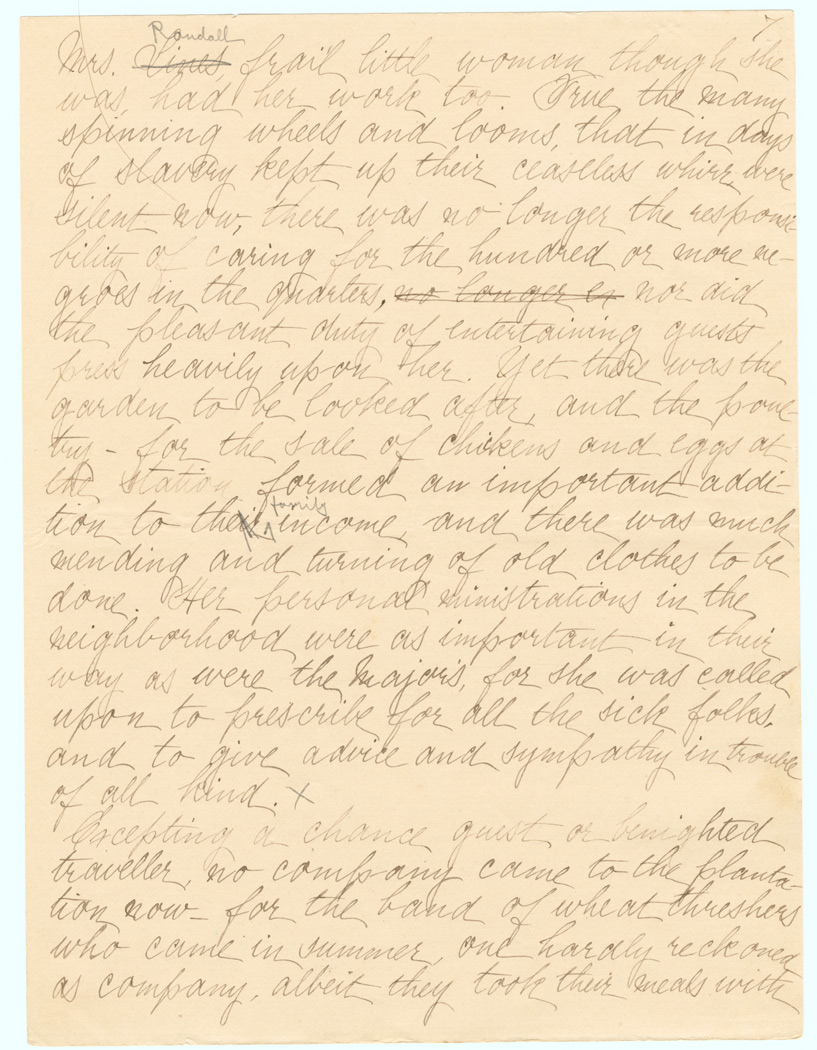 7
Randall
Mrs. Lines, frail little woman though she
was, had her work too. True the many
spinning wheels and looms, that in days
of slavery kept up their ceaseless whirr were
silent now, there was no longer the responsi-
bility of caring for the hundred or more ne-
groes in the quarters, no longer en nor did
the pleasant duty of entertaining guests
press heavily upon her. Yet there was the
garden to be looked after, and the poue-
try - for the sale of chickens and eggs at
the station formed an important addi-
family
tion to their income, and there was much
mending and turning of old clothes to be
done. Her personal ministrations in the
neighborhood were as important in their
way as were the Major's, for she was called
upon to prescribe for all the sick folks,
and to give advice and sympathy in trouble
of all kind. x
Excepting a chance guest or benighted
traveller, no company came to the planta-
tion now - for the band of wheat threshers
who came in summer, one hardly reckoned
as company, albeit they took their meals with